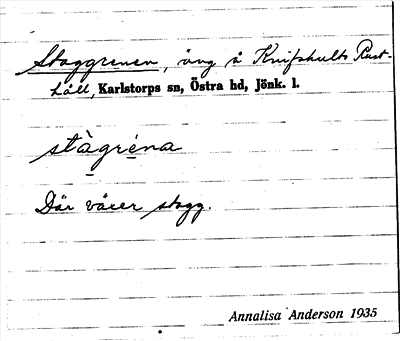 Staggrenen, äng å Knifshults Rust-
håll, Karlstorps sn, Östra hd, Jönk. l.
stàgréna
Där växer stagg.
Annalisa Anderson 1935